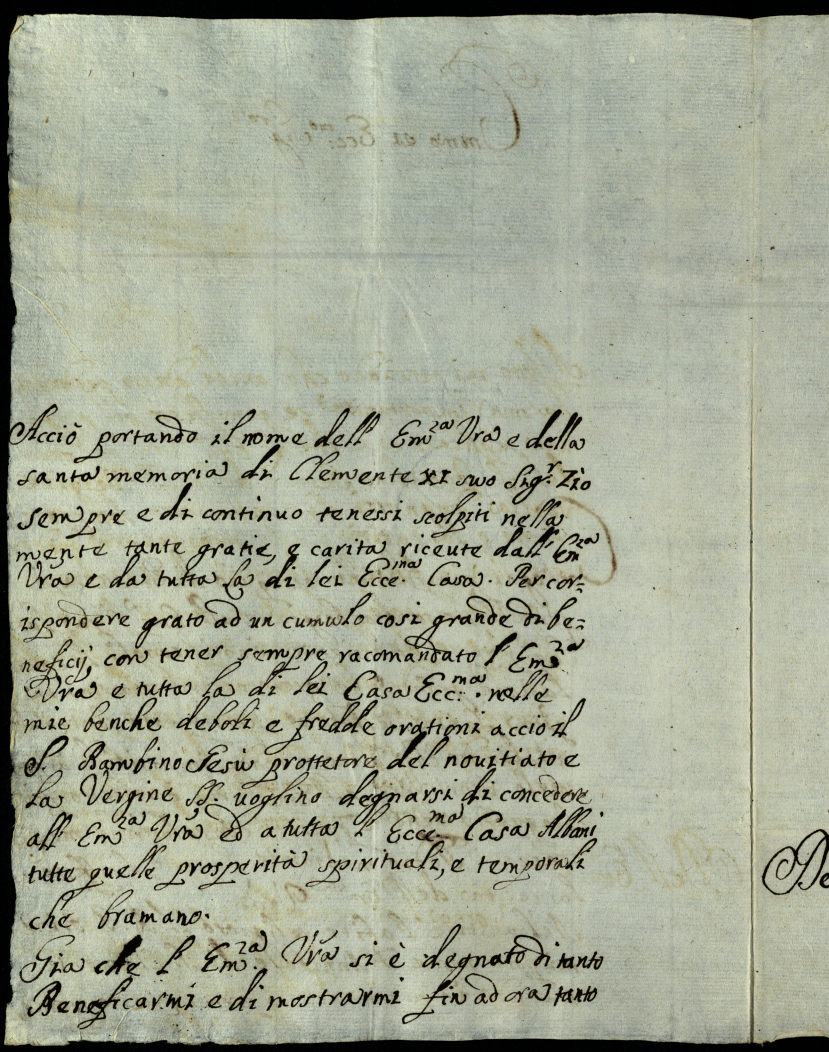 Acciò portando il nome dell' Em.za Vra e della
santa memoria di Clemente XI suo Sigr. Zio
sempre e di continuo tenessi scolpiti nella
mente tante gratie, e carita riceute dall' Em.za
Vra e da tutta la di lei Ecce.ma Casa. Per cor=
ispondere grato ad un cumulo cosi grande di be=
neficij, con tener sempre racomandato l' Em.za
Vra e tutta la di lei Casa Ecc.ma nelle
mie benche deboli e fredde orationi accio il
S. Bambino Gesù prottetore del novitiato e
la Vergine SS. voglino degnarsi di concedere
all' Em.za Vra ed a tutta l' Ecce.ma Casa Albani
tutte quelle prosperità spirituali, e temporali
che bramano.
Gia che l' Em.za Vra si è degnato di tanto
Beneficarmi e di mostrarmi fin ad ora tanto
De